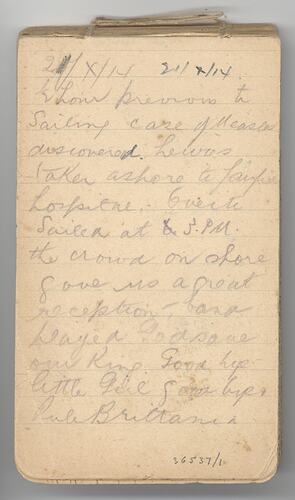 21/X/14 21/X/14.
½ hour previous to
Sailing case of Measles
discovered. he was
taken ashore to
hospital.
Sailed at 5. P.M.
the crowd on shore
gave us a great
reception, band
played God save
our King.
little Girl
Rule Brittania
36537/1